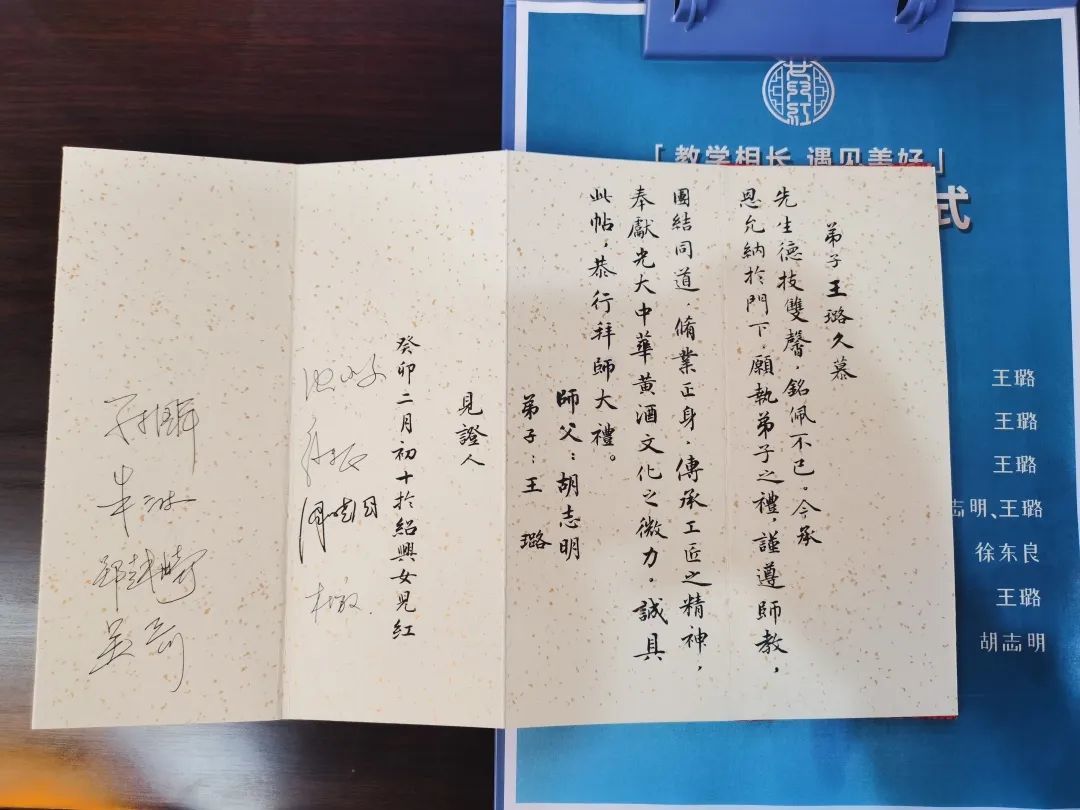 弟子王璐久慕
先生德技雙馨，銘佩不已。今承
恩允納於門下，願執弟子之禮，謹遵師教，
團結同道，脩業正身，傳承工匠之精神，
奉獻光大中華黃酒文化之微力。誠具
此帖，恭行拜師大禮。
師父：胡志明
弟子：王璐
見證人
癸卯二月初十於紹興女兒紅
女兒紅
「教学相长 遇见美好」
式
王璐
王璐
王璐
志明、王璐
徐东良
王璐
胡志明